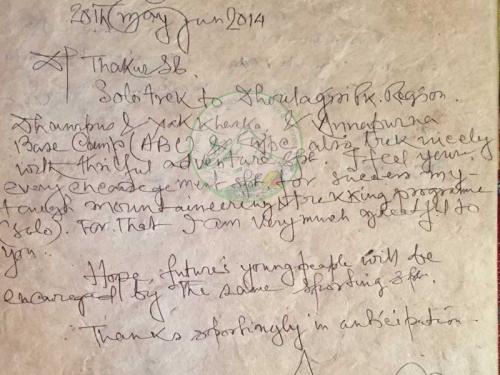 20th (may) Jun 2014
Thakur Sb.
Solo trek to Dhoulagiri Pk. Region.
Dhumpus & Yak Kharka & Annapurna
Base Camp (ABC) also trek nicely
with thrilful adventure I feel your
every encouragement for success my
tough mountaineering & trekking programme
(solo). For that I am very much greatful to
you.
Hope, future's young people will be
encouraged by the same sporting
Thanks sportingly in anticipation